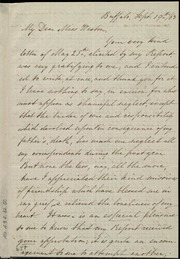 Buffalo, Sept. 19th, 53
My Dear Miss Weston,
Your very kind
letter of May 25th, elicited by my Report,
was very gratifying to me, and I intend-
ed to write at once, and thank you for it.
I have nothing to say, in excuse, for al-
most appears so shameful neglect except
that the burden of care and responsibility
which devolved upon me consequence of my
father's death, has made me neglect all
my correspondents during the past year.
But none the less, am I all the more,
have I appreciated these kind evidences
of friendship which have blessed me in
my grief & cheered the loneliness of my
heart. It was, is an especial pleasure
to me to know that my Report received
your approbation; it is quite an encour-
agement to me to attempt another,